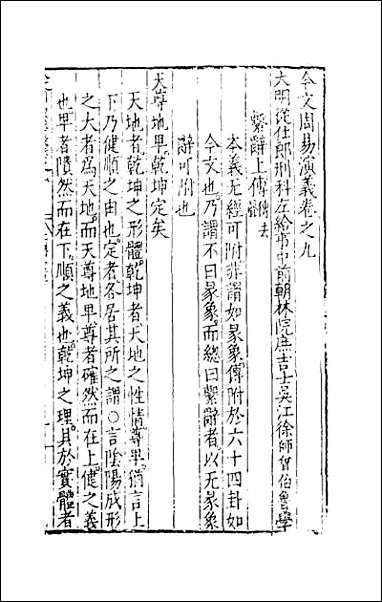 今文周易演義卷之九
大明從仕郎刑科左給事中前翰林院庶吉士吳江徐師曾伯魯學
繫辭上傳
本義无經可附非謂如彖象傳附於六十四卦如
今文也乃謂不曰彖象而總曰繫辭者以无彖象
辭可附也
天尊地卑乾坤定矣
天地者乾坤之形體乾坤者天地之性情尊卑猶言上
下乃健順之由也定者各居其所之謂○言陰陽成形
之大者為天地而天尊地卑尊者確然而在上健之義
也卑者隤然而在下順之義也乾坤之理具於實體者